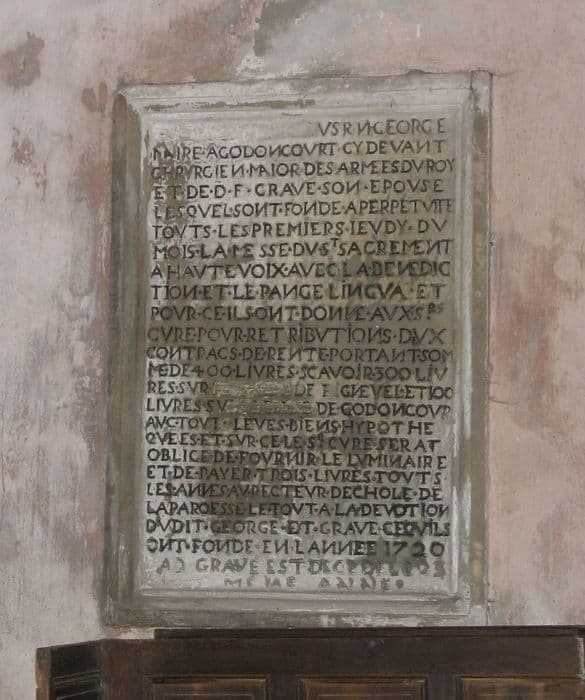 VSRNGEORGE
MAIRE·AGODONCOURT·CYDEVANT
CHIRVRGIEN·MAIOR·DES·ARMEES·DV·ROY
ET·DE·D·F·GRAVE·SON·EPOVSE
LESQVELSONT·FONDE·APERPETVITE
TOVTS·LES·PREMIERS·IEVDY·DV
MOIS·LA·MESSE·DVST SACREMENT
A·HAVTE·VOIX·AVEC·LA·BENEDIC
TION·ET·LE·PANGE·LINGVA·ET
POVR·CE·ILSONT·DONNE·AVX·SRS
CVRE·POVR·RETRIBVTIONS·DVX
CONTRACS·DE·RENTE·PORTANT·SOM
ME·DE·400·LIVRES·SCAVOIR·300·LIV
RES·SVR DE ET·100
LIVRES·SV DE·GODONCOVR
AVC·TOVT·LEVES·BIENS·HYPOTHE
QVEES·ET·SVR·CE·LE·SR·CVRE·SERAT
OBLICE·DE·FOVRNIR·LE·LVMINAIRE
ET·DE·PAYER·TROIS·LIVRES·TOVTS
LES·ANNES·AV·RECTEVR·DECHOLE·DE
LAPAROESSE·LE·TOVT·A·LA·DEVOTION
DVDIT·GEORGE·ET·GRAVE·CEQVILS
ONT·FONDE·EN·LANNEE 1720
GRAVE EST DECEDE
MEME ANNEE·